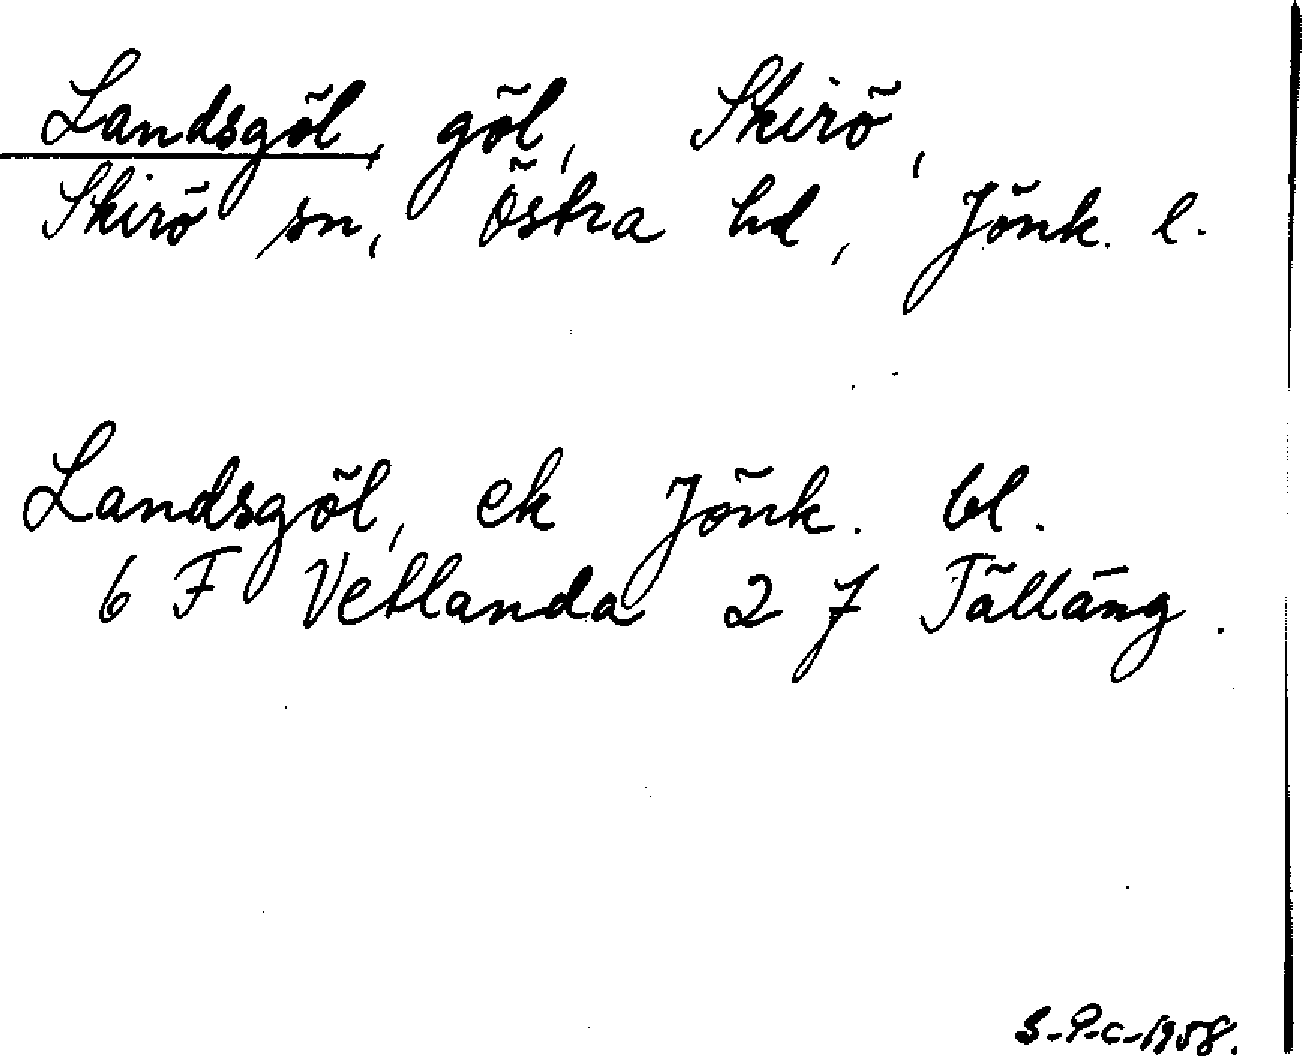 Landsgöl, göl, Skirö,
Skirö sn, Östra hd, Jönk. l.
Landsgöl, ek Jönk. bl.
6 F Vetlanda 2 j Tälläng.
S-P-c-1958.